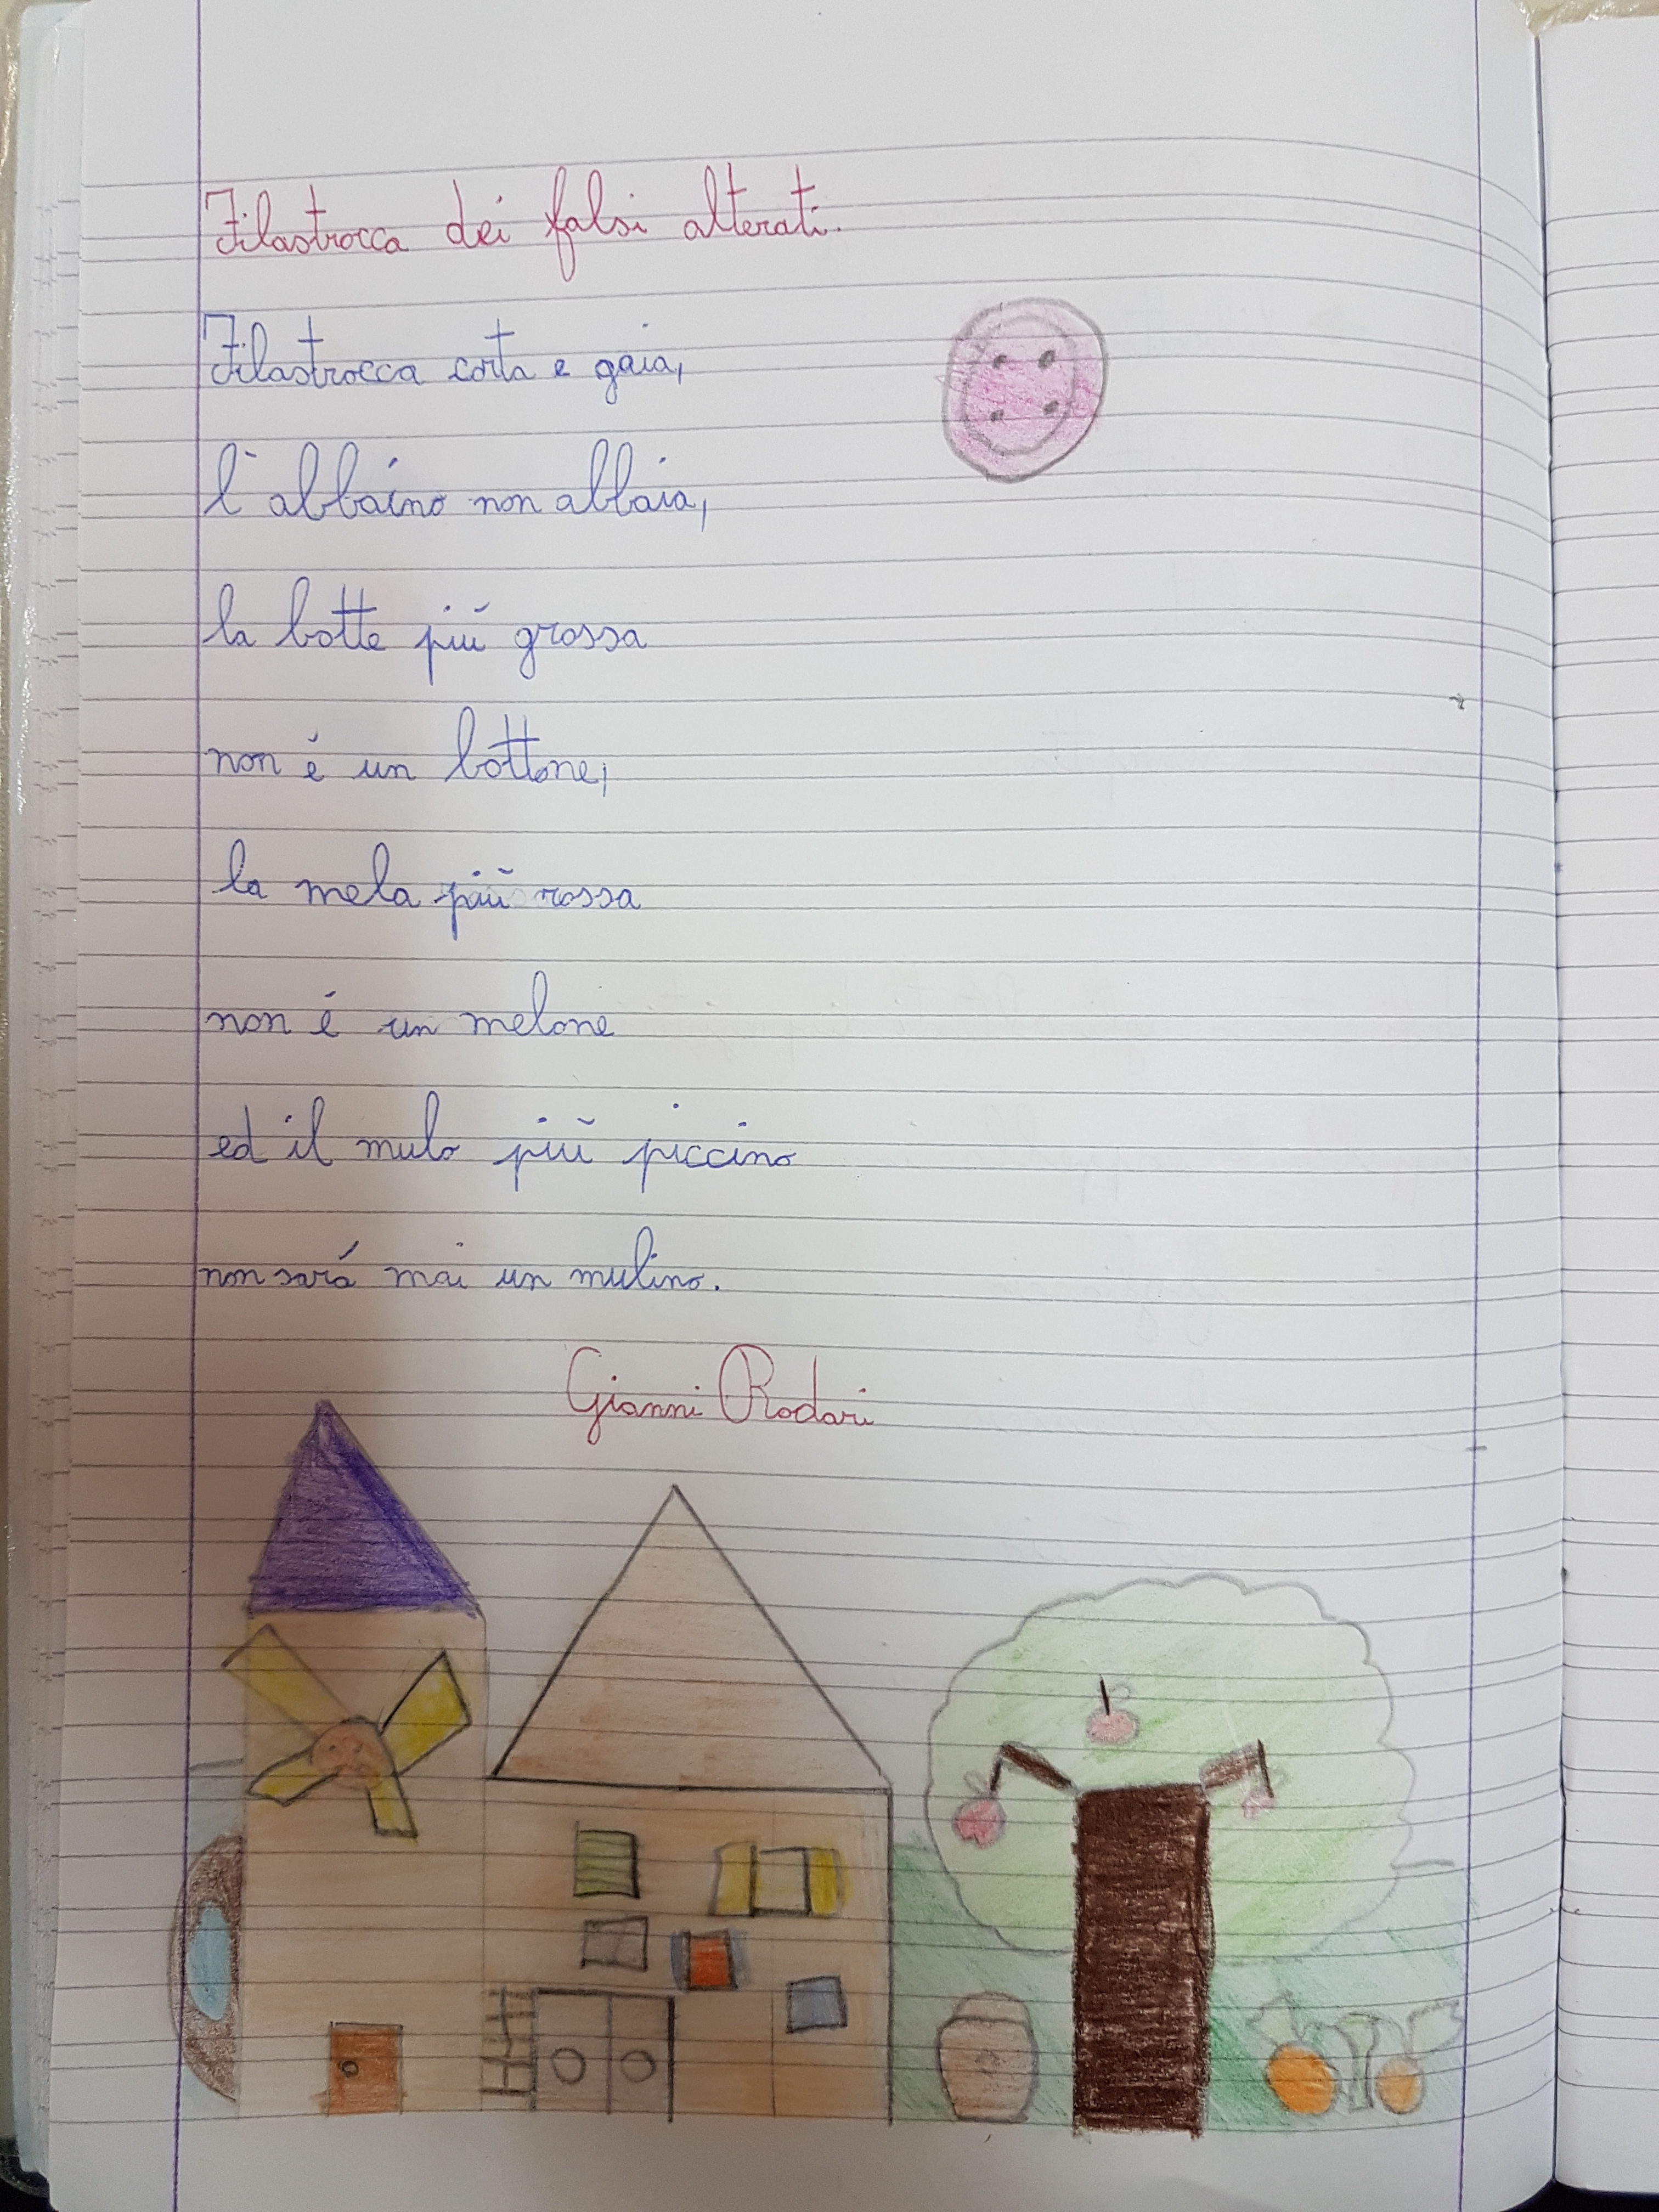 Filastrocca dei falsi alterati.
Filastrocca corta e gaia,
l'abbaino non abbaia,
la botte più grossa
non é un bottone,
la mela più rossa
non é un melone
ed il mulo più piccino
non sará mai un mulino.
Gianni Rodari